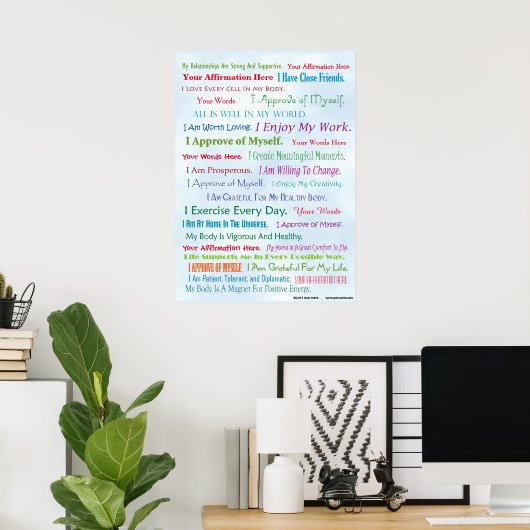 My Relationships Are Strong And Supportive. Your Affirmation Here
Your Affirmation Here I Have Close Friends.
I Love Every Cell In My Body.
Your Words I Approve of Myself.
ALL IS WELL IN MY WORLD.
I Am Worth Loving. I Enjoy My Work.
I Approve of Myself. Your Words Here
Your Words Here I Create Meaningful Moments.
I Am Prosperous. I Am Willing To Change.
I Approve of Myself. I Enjoy My Creativity.
I Am Grateful For My Healthy Body.
I Exercise Every Day. Your Words
I Am At Home In The Universe. I Approve of Myself.
My Body Is Vigorous And Healthy.
Your Affirmation Here. My Home Is A Great Comfort To Me.
Life Supports Me In Every Possible Way.
I APPROVE OF MYSELF I Am Grateful For My Life.
I Am Patient, Tolerant, and Diplomatic. YOUR AFFIRMATION HERE
My Body Is A Magnet For Positive Energy.